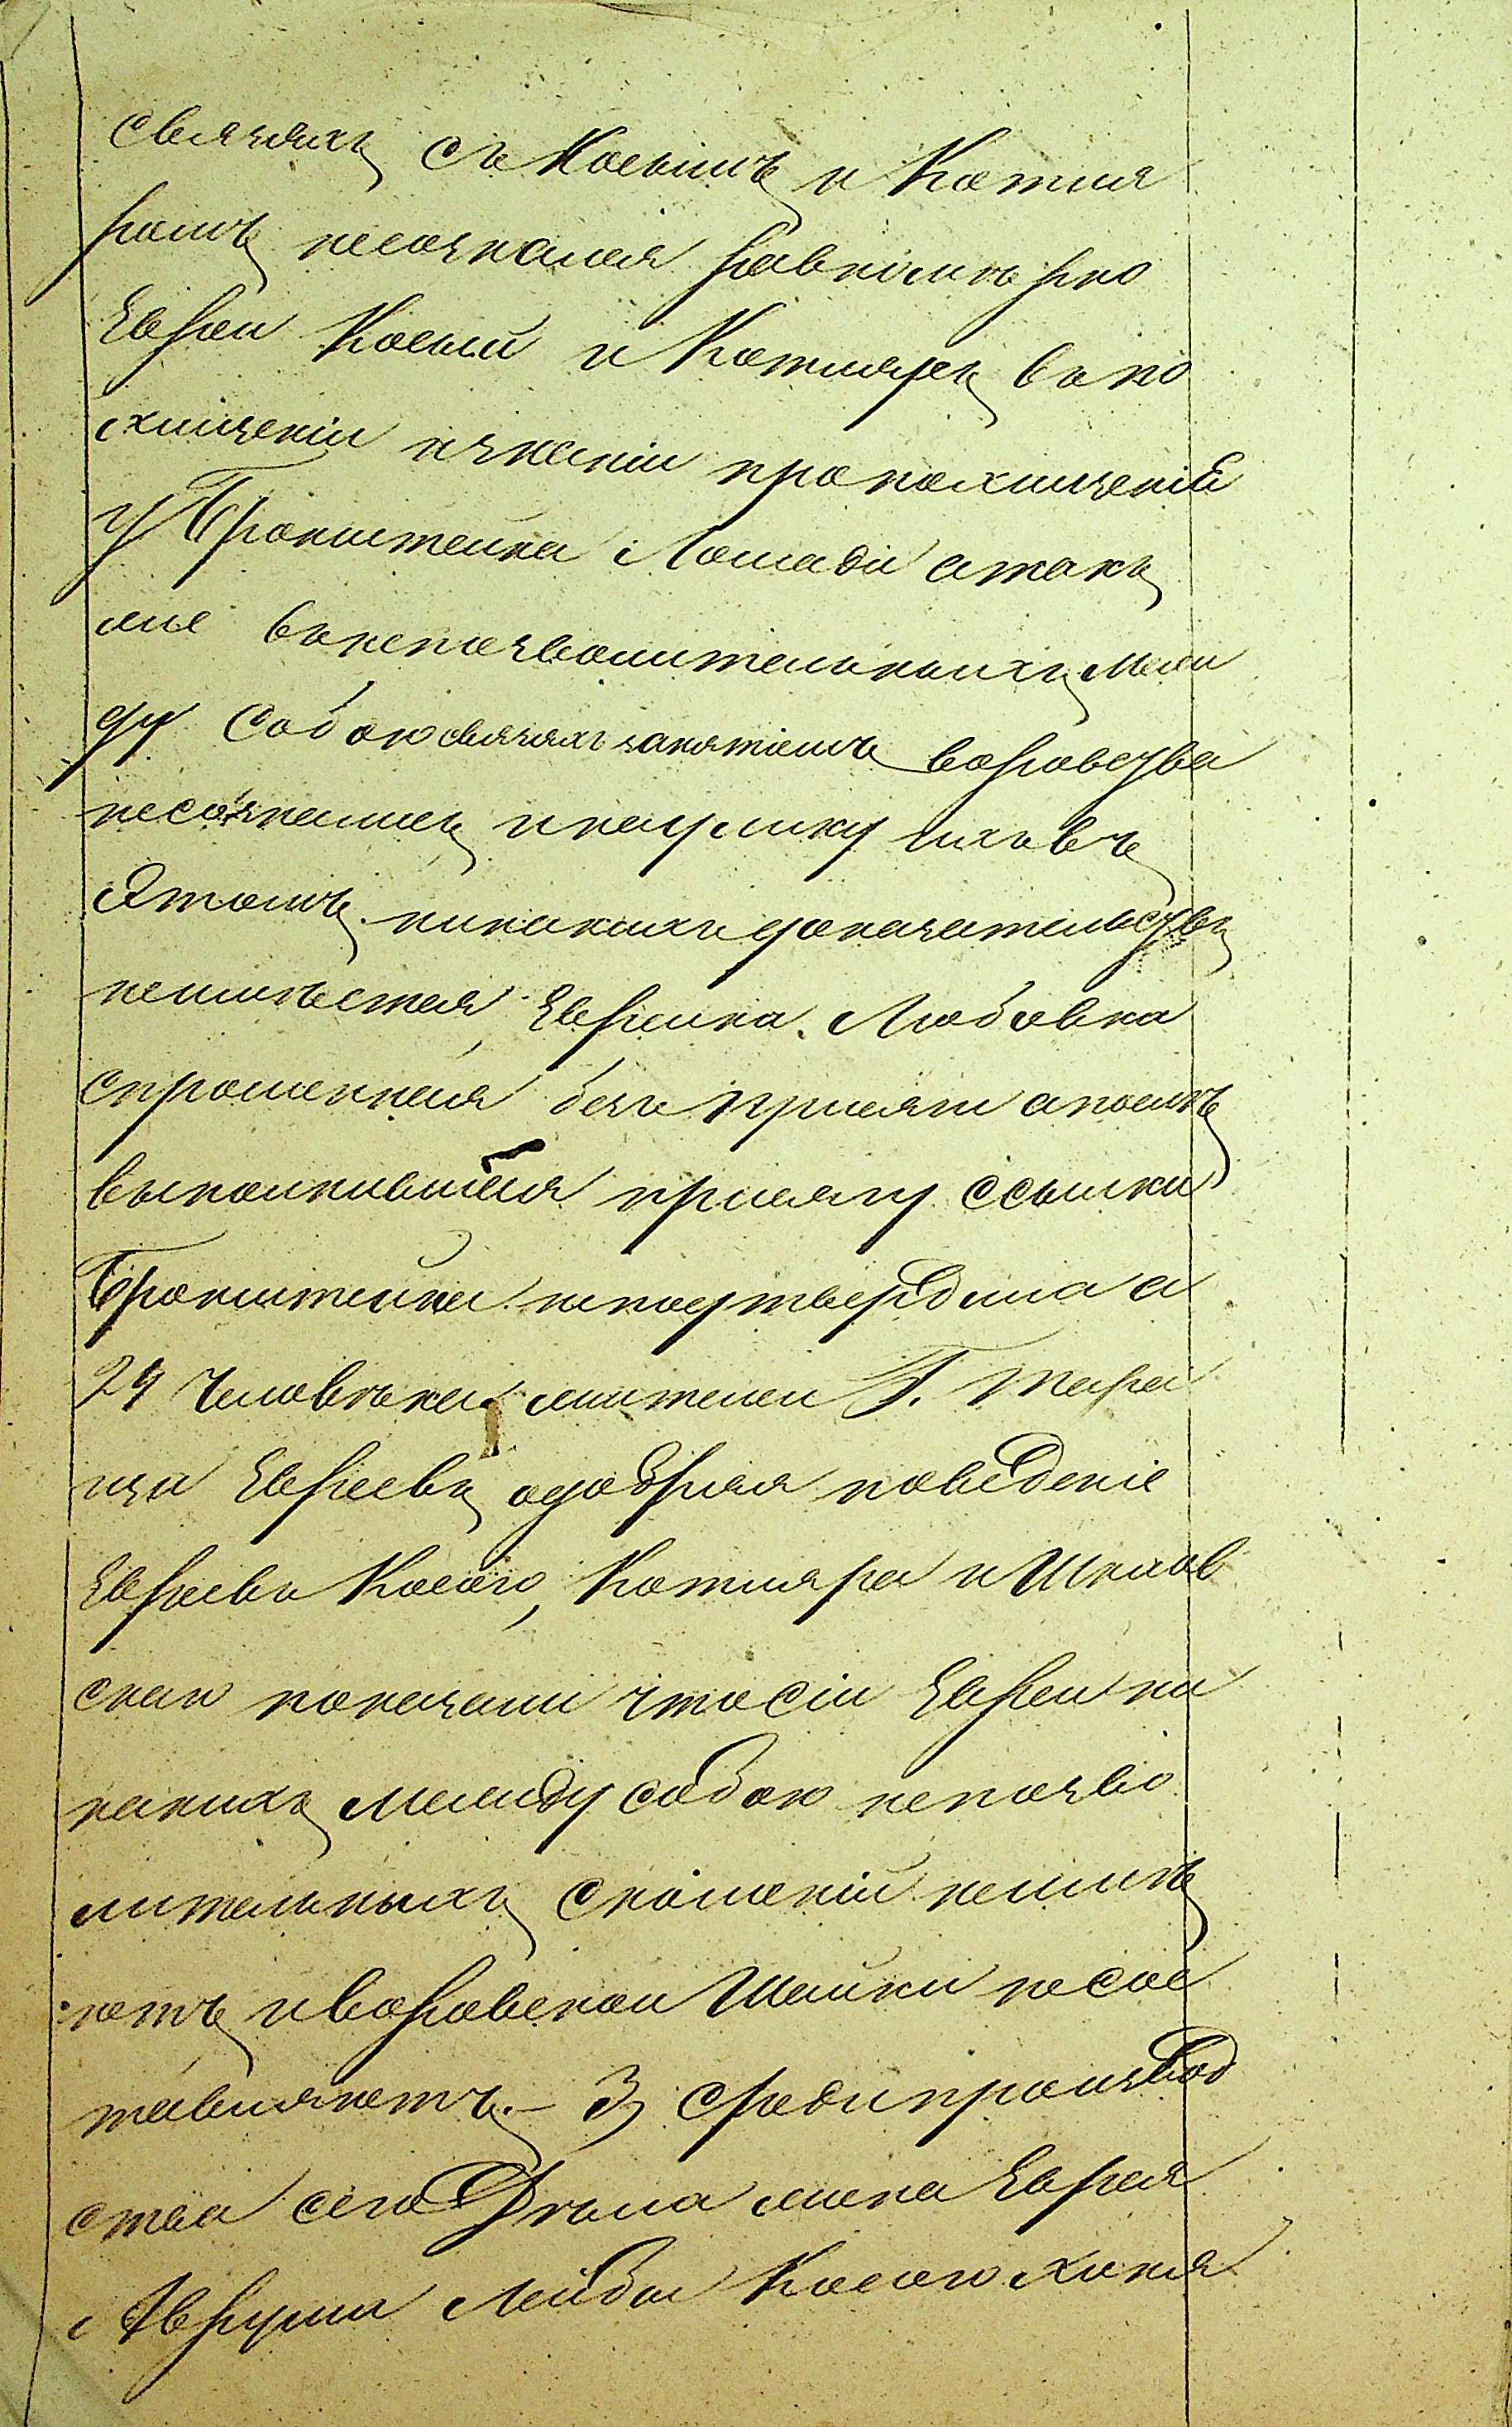 связяхъ съ Косымъ и Котля
ромъ несозналея равномѣрно
Евреи Косый и Котляръ въ по
хищеніи изнесіи пропохищеніе
у Бронштейна Лошади атакъ
же внепозволительныхъ меж
ду Собою связях занятіемъ воровства
несознались инаулику ихъ въ
Этомъ никакихъ доказательствъ
неимѣется, Еврейка Любовка
спрошенная безъ присяги апосемъ
выполнившая присягу ссылки
Бронштейна неподтвердила а
24 Человѣка жителей Г. Тара
щи Евреевъ одобряя поведеніе
Евреевъ Косого, Котляра и Шклов
скаго показали что сіи Евреи ни
какихъ между собою непозво
лительныхъ сношеній неимѣ
ютъ и воровской Шайки несос
тавляютъ.— 3) среди производ
ства сего Дѣла жена Еврея
Аврума Лейбы Косого Ханя